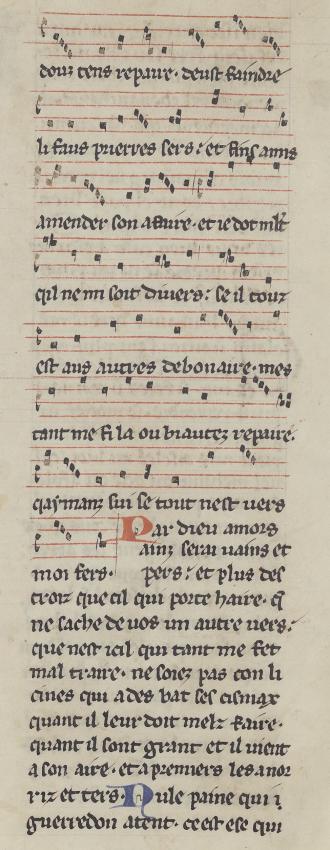 douz tens repaire· deust faindre
li faus prierres sers: et fins amis
amender son afaire· et ie dot mlt
qil ne mi soit divers: se il touz
est aus autres debonaire· mes
tant me fi la ou biautez repaire·
qas manz sui se tout nest vers
Par dieu amors
ainz serai vains et
moi fers· pers: et plus des
croiz que cil qui porte haire· q
ne sache de vos un autre vers:
que nest icil qui tant me fet
mal traire· ne soiez pas con li
cines qui ades bat ses cisniax
quant il leur doit melz faire·
quant il sont grant et il vient
a son aire· et a premiers les a nor
riz et ters· Nule paine qui i
guerredon atent· ce est ese qui